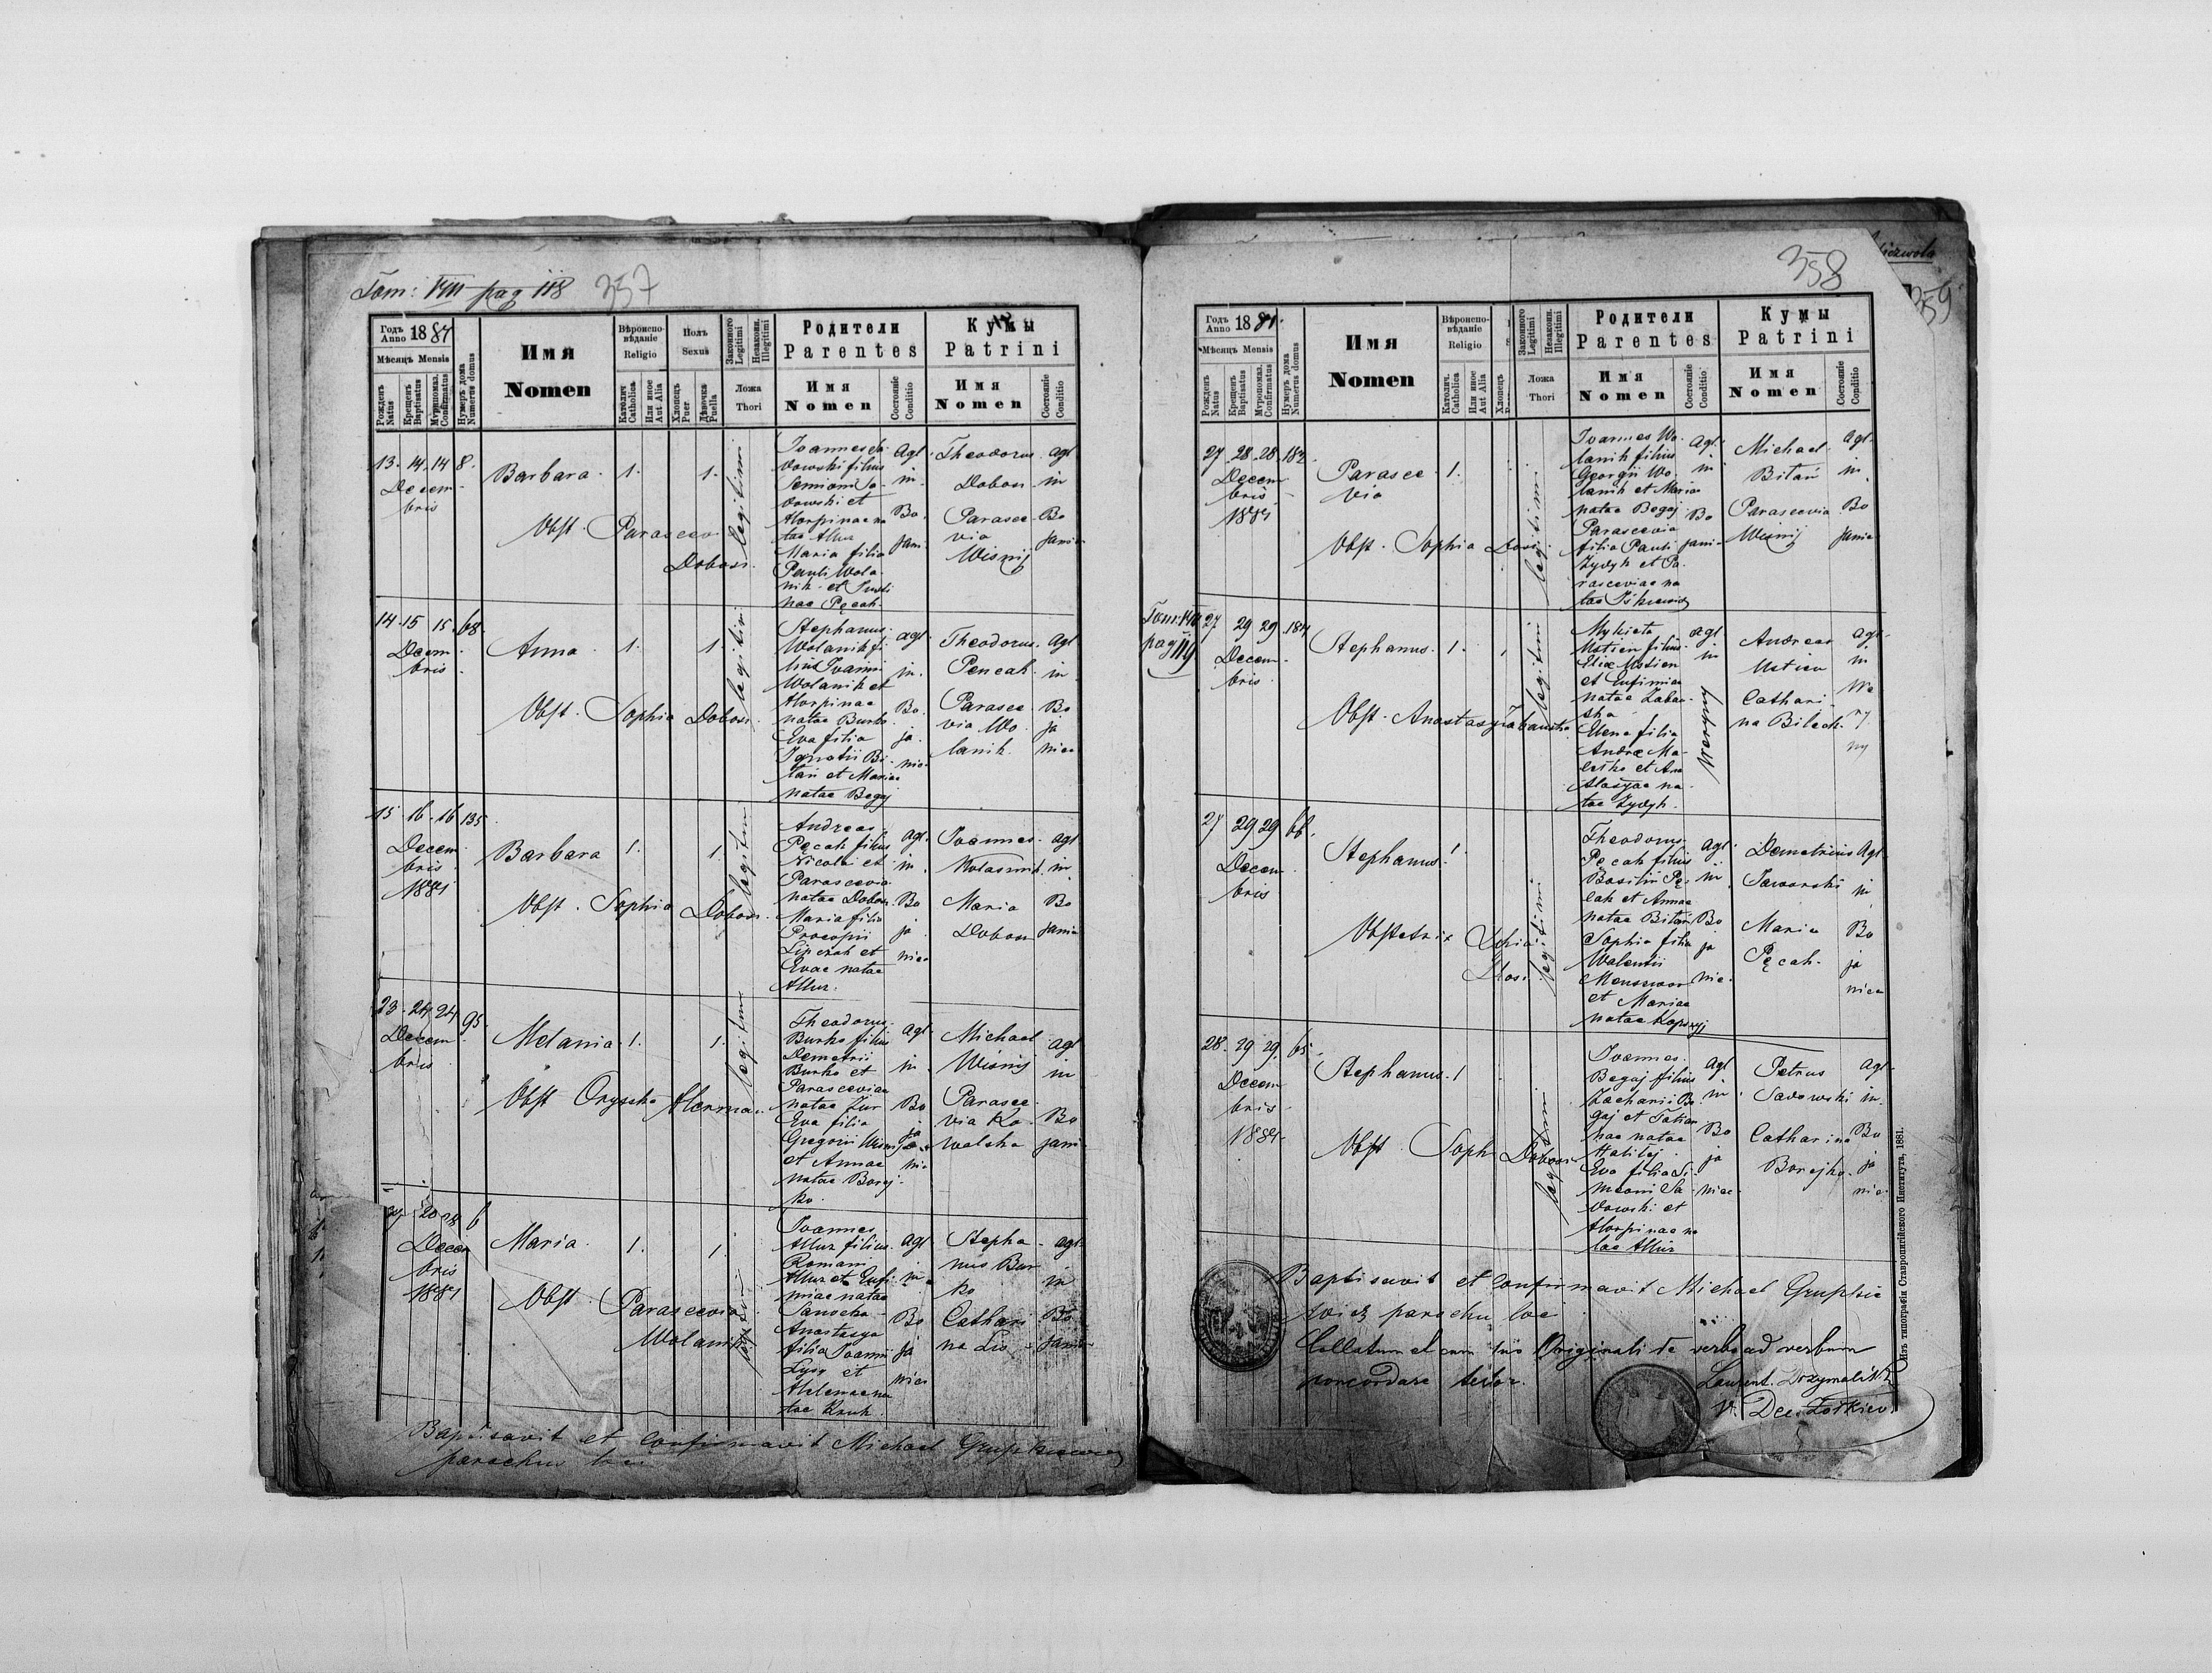 Tom: VIII pag 118 357
Годъ Anno 1884
Мѣсяцъ Mensis
Рожденъ Natus
Крещенъ Baptisatus
Муропомаз. Confirmatus
Нумеръ дома Numerus domus
Имя
Nomen
Вѣроисповѣданіе
Religio
Католич Catholica
Или иное Aut Alia
Полъ
Sexus
Хлопецъ Puer
Дѣвочка Puella
Законного Legitimi
Незаконн. Illegitimi
Ложа
Thori
Родители
Parentes
Имя
Nomen
Состояніе
Conditio
Кумы
Patrini
Имя
Nomen
Состояніе
Conditio
13. 14. 14 8.
Decem
bris
Barbara. 1. 1.
Obst. Parascevi
Dobosz.
legitimi
Joannes Sa
dowski filius
Semioni Sa
dowski et
Horpinae na
tae
Maria filia
Pauli Wola
nik et Justi
nae Pęcak.
Agl. in Bo jani
Theodorus
Dobosz
Parasce
via
Wiśnij
agl in Bo janie
14. 15 15. 68.
Decem
bris
Anna 1. 1.
Obst. Sophia Dobosz.
legitimi
Stephanus
Wolanik fi
lius Joanni
Wolanik et
Horpinae
natae Burko
Eva filia
Ignatii Bi
tań et Mariae
natae Begaj
agl. in. Bo. ja nie
Theodorus.
Pencak
Parasce
via Wo
lanik.
agl in Bo ja niec
15 16 16 135
Decem
bris
1884
Barbara 1. 1.
Obst. Sophia Dobosz.
legitimi
Andreas
Pęcak filius
Nicolai et
Parascevia
natae Dobosz
Maria filia
Procopii
Lipczak et
Evae natae
agl. in. Bo ja niec
Joannes
Maria
Dobosz
agl in Bo janie
23 24 24 95
Decem
bris
Melania 1. 1.
Obst Oryszka
legitimi
Theodorus
Burko filius
Demetrii
Burko et
Parasceviae
natae Żur
Eva filia
Gregorii
et Annae
natae Borej
ko.
agl. in Bo ja nie
Michael
Wiśnij
Parasce
via Ko
walcha
agl in Bo jani
6
Decem
bris
1884
Maria. 1. 1.
Obst. Parascevia
Wolanik
Joannes
filius
Romani
et Eufi
miae natae
Anastasya
filia Joanni
Lys et
Helenae na
tae Kruk.
agl in Bo ja niec
Stepha
nus Bur
ko
Cathari
na Lis
agl in Bo janie
Baptisavit et confirmavit Michael
parochus loci
358
359
Годъ Anno 1884.
Мѣсяцъ Mensis
Рожденъ Natus
Крещенъ Baptisatus
Муропомаз. Confirmatus
Нумеръ дома Numerus domus
Имя
Nomen
Вѣроисповѣданіе
Religio
Католич. Catholica
Или иное Aut Alia
Хлопецъ
Законного Legitimi
Незаконн. Illegitimi
Ложа
Thori
Родители
Parentes
Имя
Nomen
Состояніе
Conditio
Кумы
Patrini
Имя
Nomen
Состояніе
Conditio
27 28 28 182
Decem
bris
1884
Parasce 1.
via
Obst. Sophia
legitimi
Joannes Wo
lanik filius
Georgii Wo
lanik et Mariae
natae Begaj
Parascevia
filia Pauli
Żydyk et Pa
rasceviae na
tae
agl. in Bo jani
Michael
Bitań
Parascevia
Wiśnij
agl in Bo janie
Tom: VIII
pag 119
27 29 29 184
Decem
bris
Stephanus. 1.
Obst. Anastasyia
legitimi
Mykieta
Mstien filius
Eliae
et Eufimiae
natae
Elena filia
Andreae
et Ana
stasyae na
tae Żydyk.
agl in
Weryny
Andreas
Cathari
na Bilech.
agl in We ry ny
27 29 29 66.
Decem
bris
Stephanus. 1
Obstetrix
legitimi
Theodorus
Pęcak filius
Basilii Pę
cak et Annae
natae Bitań
Sophia filia
Walentii
et Mariae
natae
agl. in Bo ja nie
Demetrius
Jaworski
Maria
Pęcak.
agl in Bo ja niec
28. 29 29. 65.
Decem
bris
1884.
Stephanus. 1
Obst Soph Dobosz
legitimi
Joannes
Begaj filius
Zacharii Be
gaj et Tatian
nae natae
Eva filia Si
meoni Sa
dowski et
Horpinae na
tae
agl in Bo ja niec
Petrus
Sadowski
Catharina
Borejko.
agl in Bo ja nie
Baptisavit et confirmavit Michael
parochus loci
Collatum et cum suo Originali de verbo ad verbum
concordare testor.
Laurent. Drzymalik
V. Dec. Żołkiew.
Изъ типографіи Ставропигійского Института, 1881.